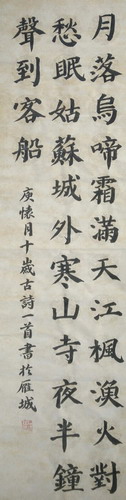 月落烏啼霜滿天江楓漁火對
愁眠姑蘇城外寒山寺夜半鐘
聲到客船
庚懷月十歲古詩一首書於雁城